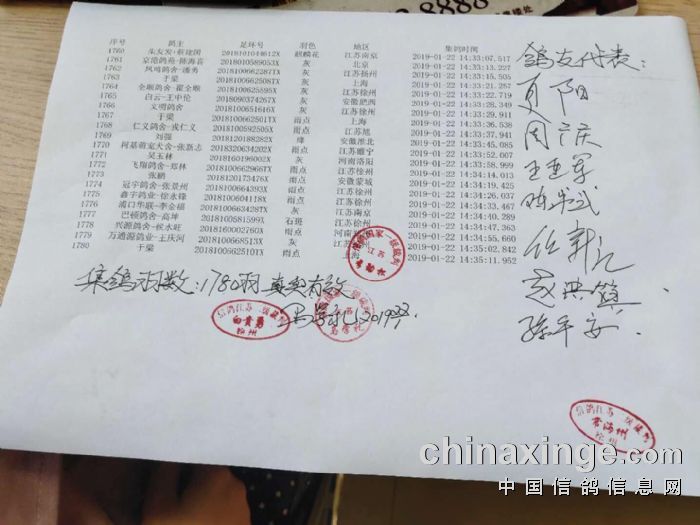 8.8888
序号 鸽主 足环号 羽色 地区 集鸽时间
1760 朱友发-蔡建国 2018101044612X 麒麟花 江苏南京 2019-01-22 14:33:07.517
1761 京港鸽苑-陈海喜 2018010589053X 灰 北京 2019-01-22 14:33:13.227
1762 凤鸣鸽舍-潘勇 201810066228TX 灰 江苏扬州 2019-01-22 14:33:15.585
1763 于梁 201810066257TX 灰 上海 2019-01-22 14:33:21.257
1764 全顺鸽舍-翟全顺 2018100625595X 灰 江苏徐州 2019-01-22 14:33:22.719
1765 白云-王中伦 2018090374267X 灰 安徽肥西 2019-01-22 14:33:28.349
1766 文明鸽舍 2018100651616X 灰 江苏徐州 2019-01-22
1767 于梁 2018100662501TX 雨点 上海 2019-01-22 14:33:36.538
1768 仁义鸽舍-戎仁义 2018100592505X 雨点 江苏旭 2019-01-22 14:33:37.941
1769 刘强 2018120188282X 绛 安徽淮北 2019-01-22 14:33:45.085
1770 柯基萌宠犬舍-张新志 2018320634202X 雨点 江苏徐州 2019-01-22 14:33:52.007
1771 吴玉林 2018160196002X 灰 河南洛阳 2019-01-22 14:33:58.999
1772 飞翔鸽舍-郑林 2018100662966TX 雨点 江苏徐州 2019-01-22 14:34:19.013
1773 张鹏 2018120173476X 雨点 安徽蒙城 2019-01-22 14:34:19.425
1774 冠宇鸽舍-张景州 2018100664393X 雨点 江苏徐州 2019-01-22 14:34:26.037
1775 鑫宇鸽业-徐永锋 201810066411TX 雨点 江苏徐州 2019-01-22 14:34:33.467
1776 浦口华联-李金福 201810066328TX 灰 江苏南京 2019-01-22 14:34:40.289
1777 巴顿鸽舍-高坤 2018100581599X 石斑 江苏徐州 2019-01-22 14:34:47.363
1778 兴源鸽舍-侯水旺 2018160002760X 雨点 河南 2019-01-22 14:34:55.660
1779 万通源鸽业-王庆河 201810066851 3X 灰 江苏 2019-01-22 14:35:02.842
1780 于梁 201810066251 0TX 雨点 上海 2019-01-22 14:35:11.952
鸽友代表：
夏阳
周广庆
王亚军
盛洪镇
孙平安
集鸽羽数：1780羽 真实有效
信鸽国家一级裁判
江苏
信鸽江苏一级裁判
白贵勇
徐州
信鸽江苏一级裁判
常海州
徐州
chinaxinge.com
中国信鸽信息网